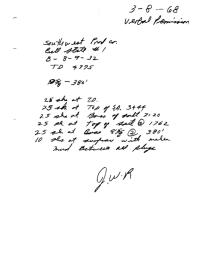 3-8-68
Verbal Permission
Southwest Prod co.
Bell State #1
B-8-9-32
TD 4775
8⅝ - 380'
25 skg at TD.
25 sk at Top of SA. 3444
25 sks at Base of salt 2120
25 sk at Top of salt @ 1762
25 sk at Base 8⅝ @ 380'
10 sks at surface with marker
mud Between all plugs
J.W.R